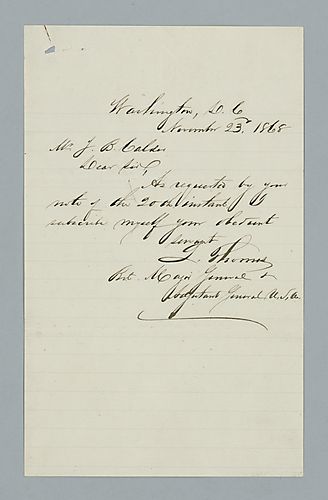 Washington, D. C
November 23ᵈ 1868
Mr J. B. Calder
Dear Sir,
As requested by your
note of the 20th instant, I
subscribe myself your obedient
servant
L. Thomas
Bvt. Major General &
Adjutant General U.S.A.